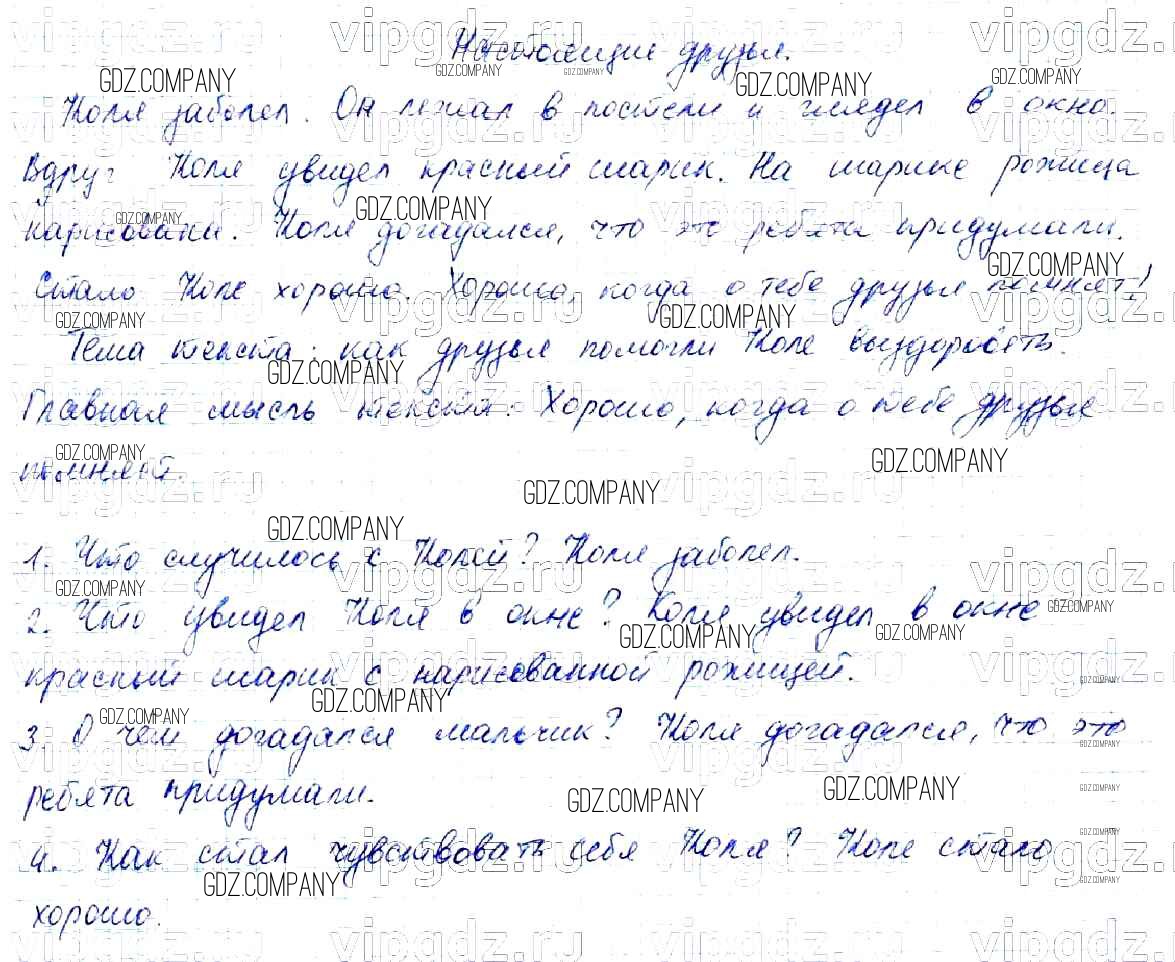 Настоящие друзья.
Коля заболел. Он лежал в постели и глядел в окно.
Вдруг Коля увидел красный шарик. На шарике рожица
нарисована. Коля догадался, что это ребята придумали.
Стало Коле хорошо. Хорошо, когда о тебе друзья помнят!
Тема текста: как друзья помогли Коле выздороветь.
Главная мысль текста: Хорошо, когда о тебе друзья
помнят.
1. Что случилось с Колей? Коля заболел.
2. Что увидел Коля в окне? Коля увидел в окне
красный шарик с нарисованной рожицей.
3. О чём догадался мальчик? Коля догадался, что это
ребята придумали.
4. Как стал чувствовать себя Коля? Коле стало
хорошо.